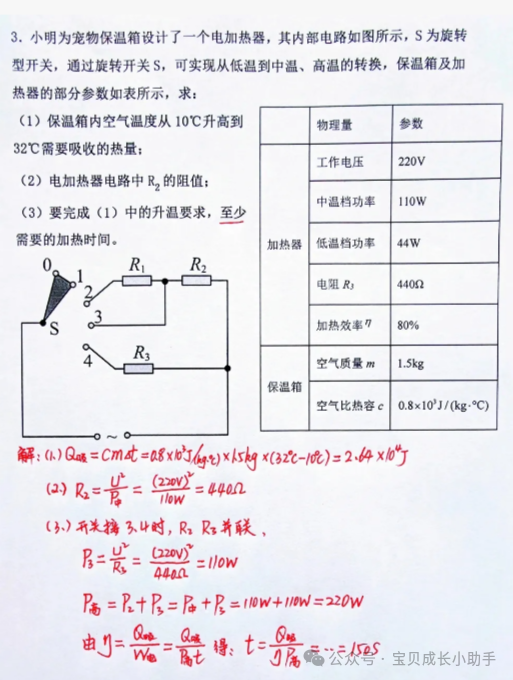 3. 小明为宠物保温箱设计了一个电加热器，其内部电路如图所示，S 为旋转
型开关，通过旋转开关 S，可实现从低温到中温、高温的转换，保温箱及加
热器的部分参数如表所示，求：
（1）保温箱内空气温度从 10℃升高到
32℃需要吸收的热量；
（2）电加热器电路中 R₂ 的阻值；
（3）要完成（1）中的升温要求，至少
需要的加热时间。
物理量 参数
加热器
工作电压 220V
中温档功率 110W
低温档功率 44W
电阻 R₃ 440Ω
加热效率 η 80%
保温箱
空气质量 m 1.5kg
空气比热容 c 0.8×10³J/(kg·℃)
0 1 R₁ R₂
2
S 3
4 R₃
~
解：(1.) Q吸=cmΔt=0.8×10³J/(kg·℃)×1.5kg×(32℃-10℃)=2.64×10⁴J
(2.) R₂=U²/P中=(220V)²/110W=440Ω
(3.) 开关接 3.4时，R₂ R₃并联，
P₃=U²/R₃=(220V)²/440Ω=110W
P高=P₂+P₃=P中+P₃=110W+110W=220W
由η=Q吸/W电=Q吸/P高t 得：t=Q吸/ηP高=…=150S
公众号·宝贝成长小助手